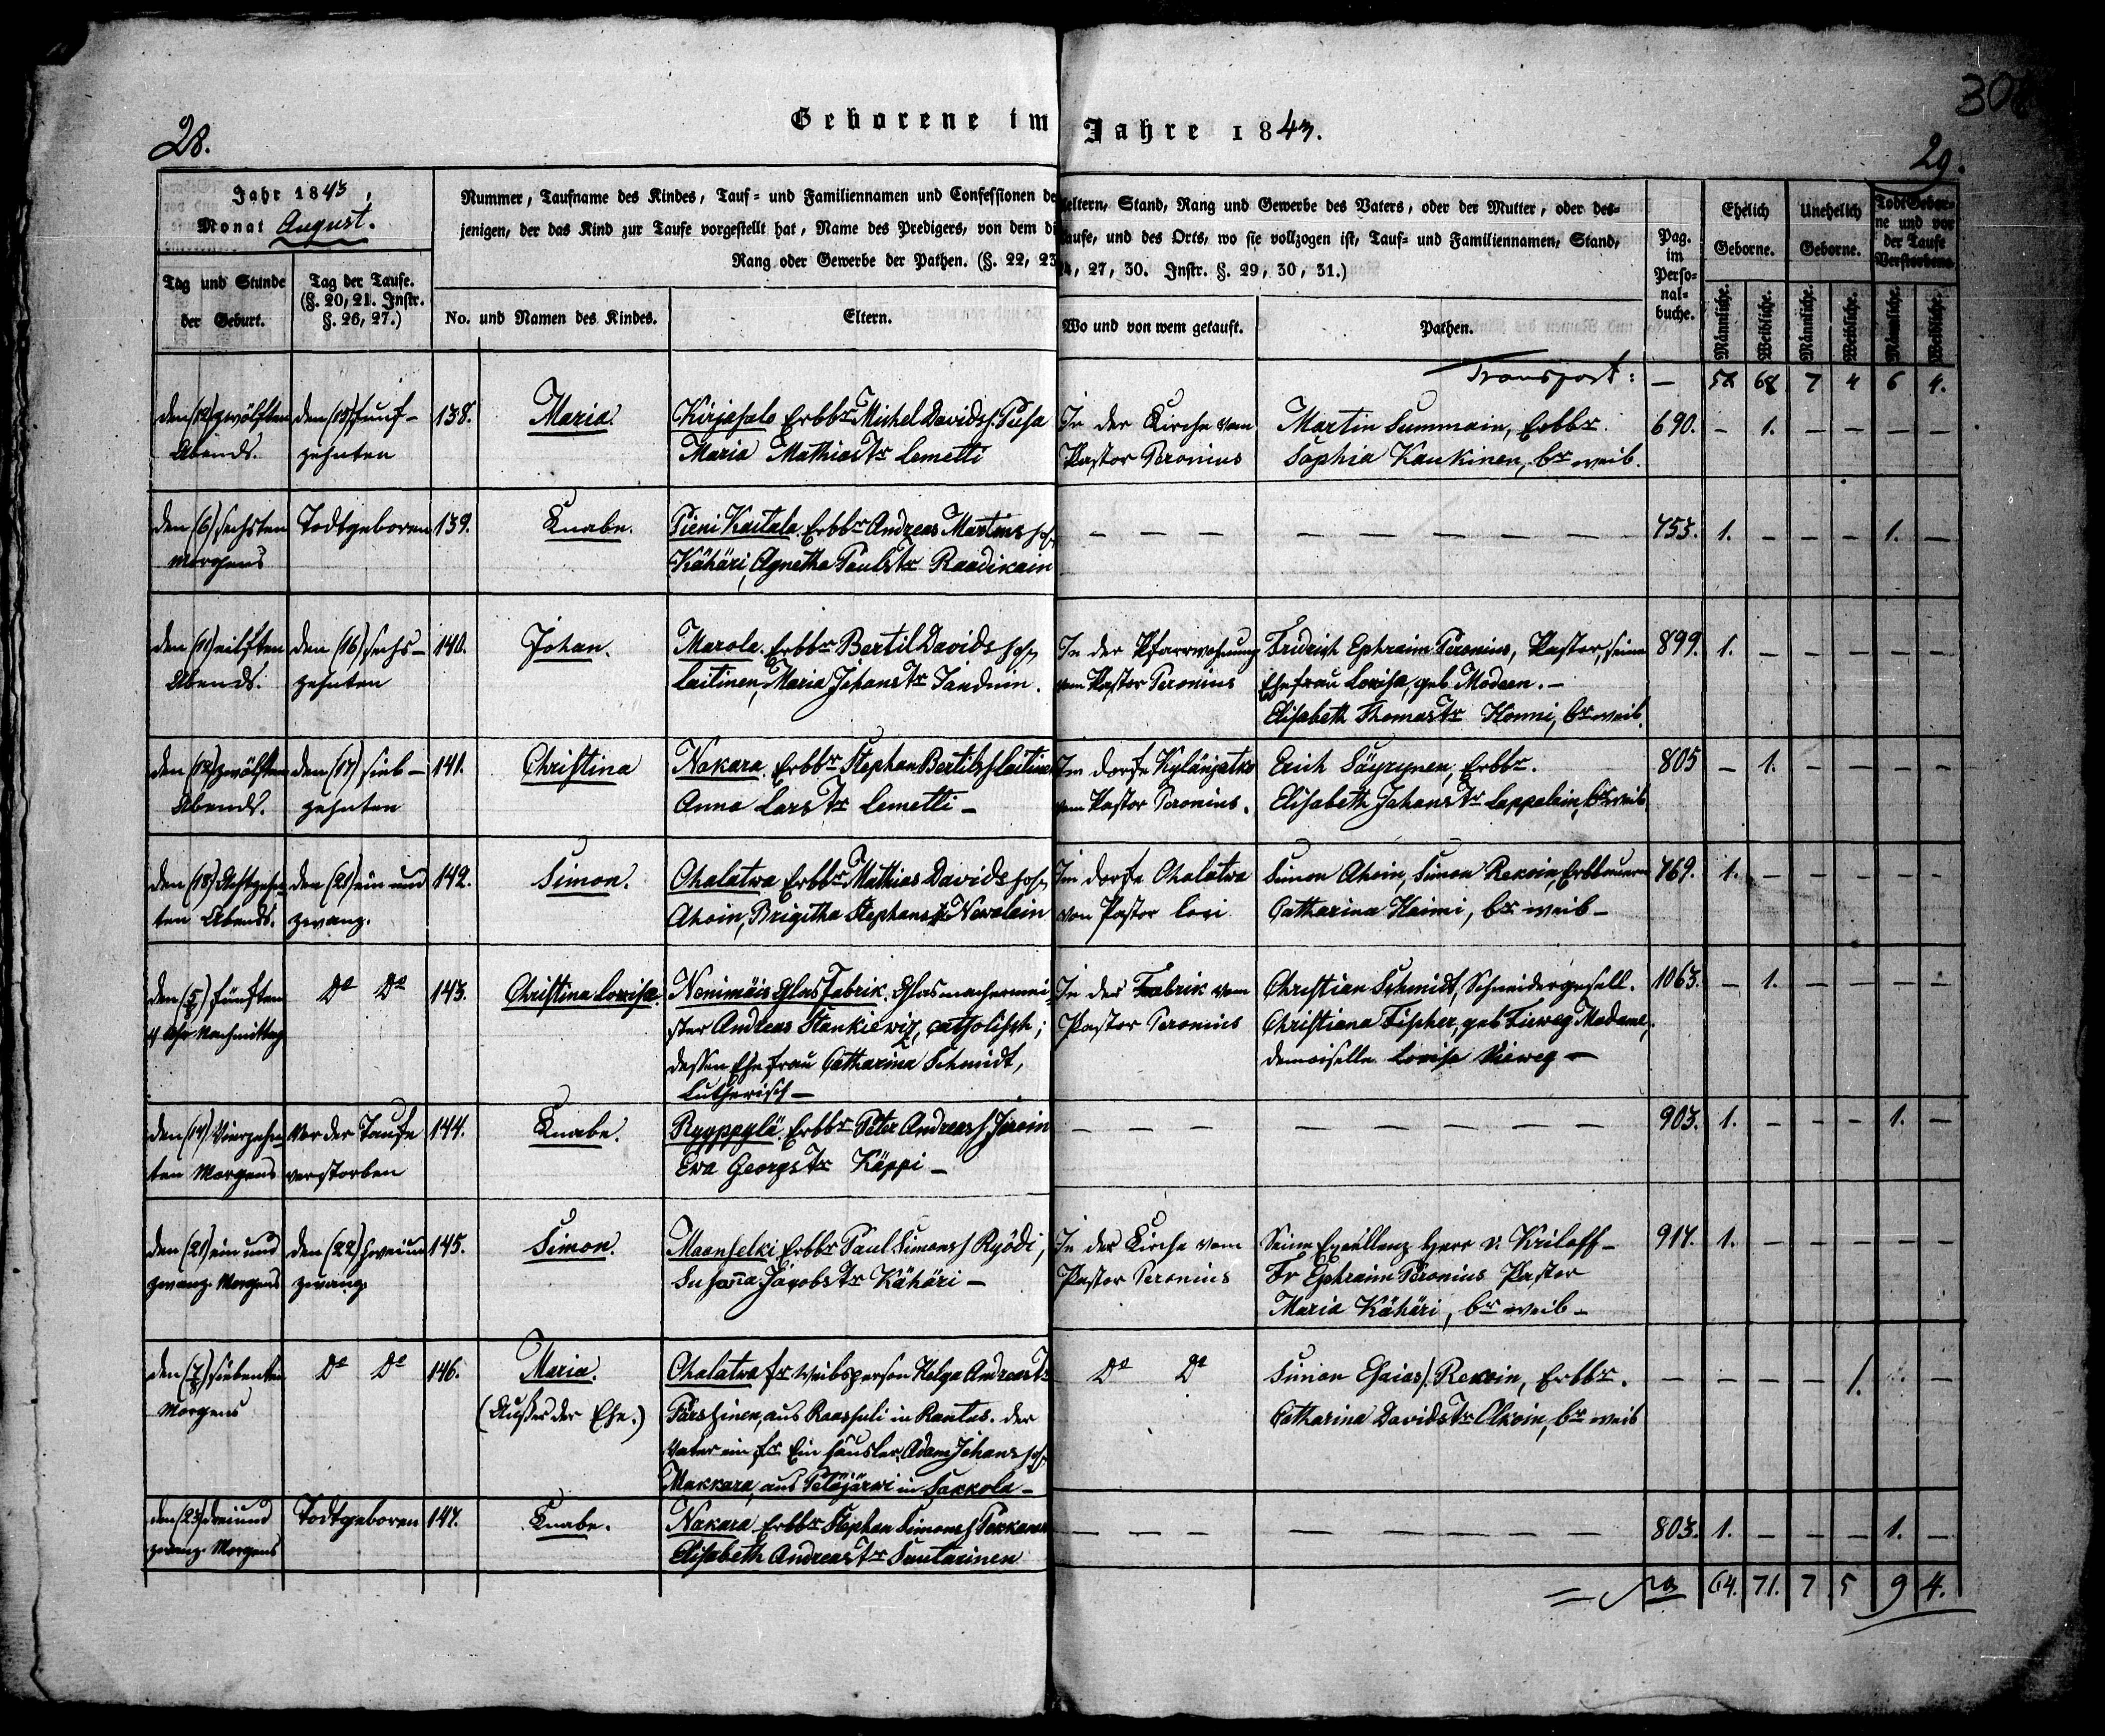 28.
Geborene im Jahre 1843.
29.
Jahr 1843,
Monat August.
Tag und Stunde der Geburt.
Tag der Taufe. (§. 20, 21. Instr. §. 26, 27.)
Nummer, Taufname des Kindes, Tauf- und Familiennamen und Confessionen der Aeltern, Stand, Rang und Gewerbe des Vaters, oder der Mutter, oder des-
jenigen, der das Kind zur Taufe vorgestellt hat, Name des Predigers, von dem die Taufe, und des Orts, wo sie vollzogen ist, Tauf- und Familiennamen, Stand,
Rang oder Gewerbe der Pathen. (§. 22, 23, 24, 27, 30. Instr. §. 29, 30, 31.)
No. und Namen des Kindes.
Eltern.
Wo und von wem getauft.
Pathen.
Pag. im Perso-nal-buche.
Ehelich Geborne.
Unehelich Geborne.
Todt Gebor-ne und vor der Taufe Verstorbene.
Männliche. Weibliche. Männliche. Weibliche. Männliche. Weibliche.
Transport: — 58 68 7 4 6 4.
den (12) zwölften
Abends.
den (15) funf-
zehnten
138.
Maria.
Kirjasalo Erbbr Michel Davids s. Pusa
Maria Mathiastr Lemetti
In der Kirche vom
Pastor Peronius
Martin Summain, Erbbr.
Sophia Kaukinen, br weib.
690. — 1. — — — —
den (6) sechsten
Morgens
Todtgeboren
139.
Knabe.
Pieni Kaitala Erbbr Andreas Martins sohn
Kähäri, Agnetha Paulstr Raadikain
— — — —
— — — — — — —
753. 1. — — — 1. —
den (11) eilften
Abends.
den (16) sechs-
zehnten
140.
Johan.
Marola. Erbbr Bertil Davids sohn
Laitinen, Maria Johanstr Janduin.
In der Pfarrwohnung
vom Pastor Peronius
Fridrich Ephraim Peronius, Pastor, seine
Ehefrau Lovisa, geb. Modeen. —
Elisabeth Thomastr Honni, br weib.
899. 1. — — — — —
den (12) zwölften
Abends.
den (17) sieb-
zehnten
141.
Christina
Nakara. Erbbr Stephan Bertils s Laitinen
Anna Larstr Lemetti —
Im dorfe Kylänjatko
vom Pastor Peronius.
Erich Säyrynen, Erbbr.
Elisabeth Johanstr Lappalain, br weib
805 — 1. — — — —
den (18) Achtzehn-
ten Abends.
den (21) ein und
zwanz.
142.
Simon.
Ohalatwa Erbbr Mathias Davids sohn
Ahoin, Brigitha Stephanstr Newalain
Im dorfe Ohalatwa
von Pastor Lori
Simon Ahoin, Simon Rekoin, Erbbauern
Catharina Haimi, br weib —
769. 1. — — — — —
den (5/8) fünften
4 Uhr Nachmittag
Do Do
143.
Christina Lovisa
Nonimäis Glas Fabrik, Glasmachermei-
ster Andreas Stankiewiz, catholisch;
dessen Ehefrau Catharina Schmidt,
Lutherisch —
In der Fabrik vom
Pastor Peronius
Christian Schmidt, Schneidergesell.
Christiana Fischer, geb. Fieweg Madame,
demoiselle Lovisa Vieweg —
1063. — 1. — — — —
den (14) Vierzehn-
ten Morgens
Vor der Taufe
verstorben
144.
Knabe.
Ryyppylä. Erbbr Peter Andreas s Järoin
Ewa Georgstr Käppi —
— — — —
— — — — — — —
903. 1. — — — 1. —
den (21) ein und
zwanz. Morgens
den (22) zwei und
zwanz.
145.
Simon.
Maanselki Erbbr Paul Simons s Ryödi,
Susanna Jacobstr Kähäri —
In der Kirche vom
Pastor Peronius
Seine Excellenz Herr v. Kriloff —
Fr Ephraim Peronius Pastor
Maria Kähäri, br weib —
917. 1. — — — — —
den (7/8) siebenten
Morgens
Do Do
146.
Maria.
(Außer der Ehe.)
Ohalatwa fr Weibsperson Helga Andreastr
Pärssinen, aus Raassuli in Rautus. der
Vater ein fr Einhäusler, Adam Johans sohn
Makkara, aus Petäjärwi in Sakkola —
Do Do
Simon Esaias s. Rekoin, Erbbr.
Catharina Davidstr Akoin, br weib
— — — — 1. — —
den (23) drei und
zwanz. Morgens
Todtgeboren
147.
Knabe.
Nakara Erbbr Stephan Simons s Perkanen
Elisabeth Andreastr Sautarinen
— — — —
— — — — — — —
803. 1. — — — 1. —
64. 71. 7 5 9 4.